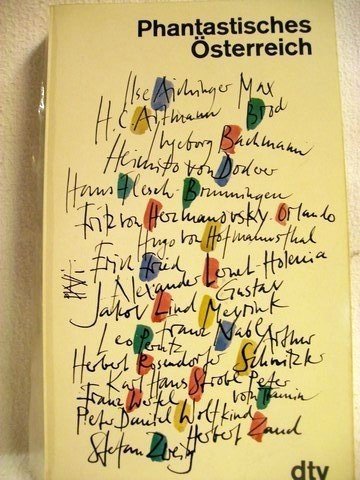 Phantastisches
Österreich
Ilse Aichinger Max
H.C. Artmann Brod
Ingeborg Bachmann
Heimito von Doderer
Hans Flesch-Brunningen
Fritz von Herzmanovsky-Orlando
Hugo von Hofmannsthal
Erich Fried
Alexander Lernet-Holenia
Jakov Lind Gustav
Meyrink
Leo Perutz Franz Nabl Arthur
Herbert Rosendorfer Schnitzler
Karl Hans Strobl Peter
Franz Werfel von Tramin
Peter Daniel Wolfkind
Stefan Zweig Herbert Zand
dtv